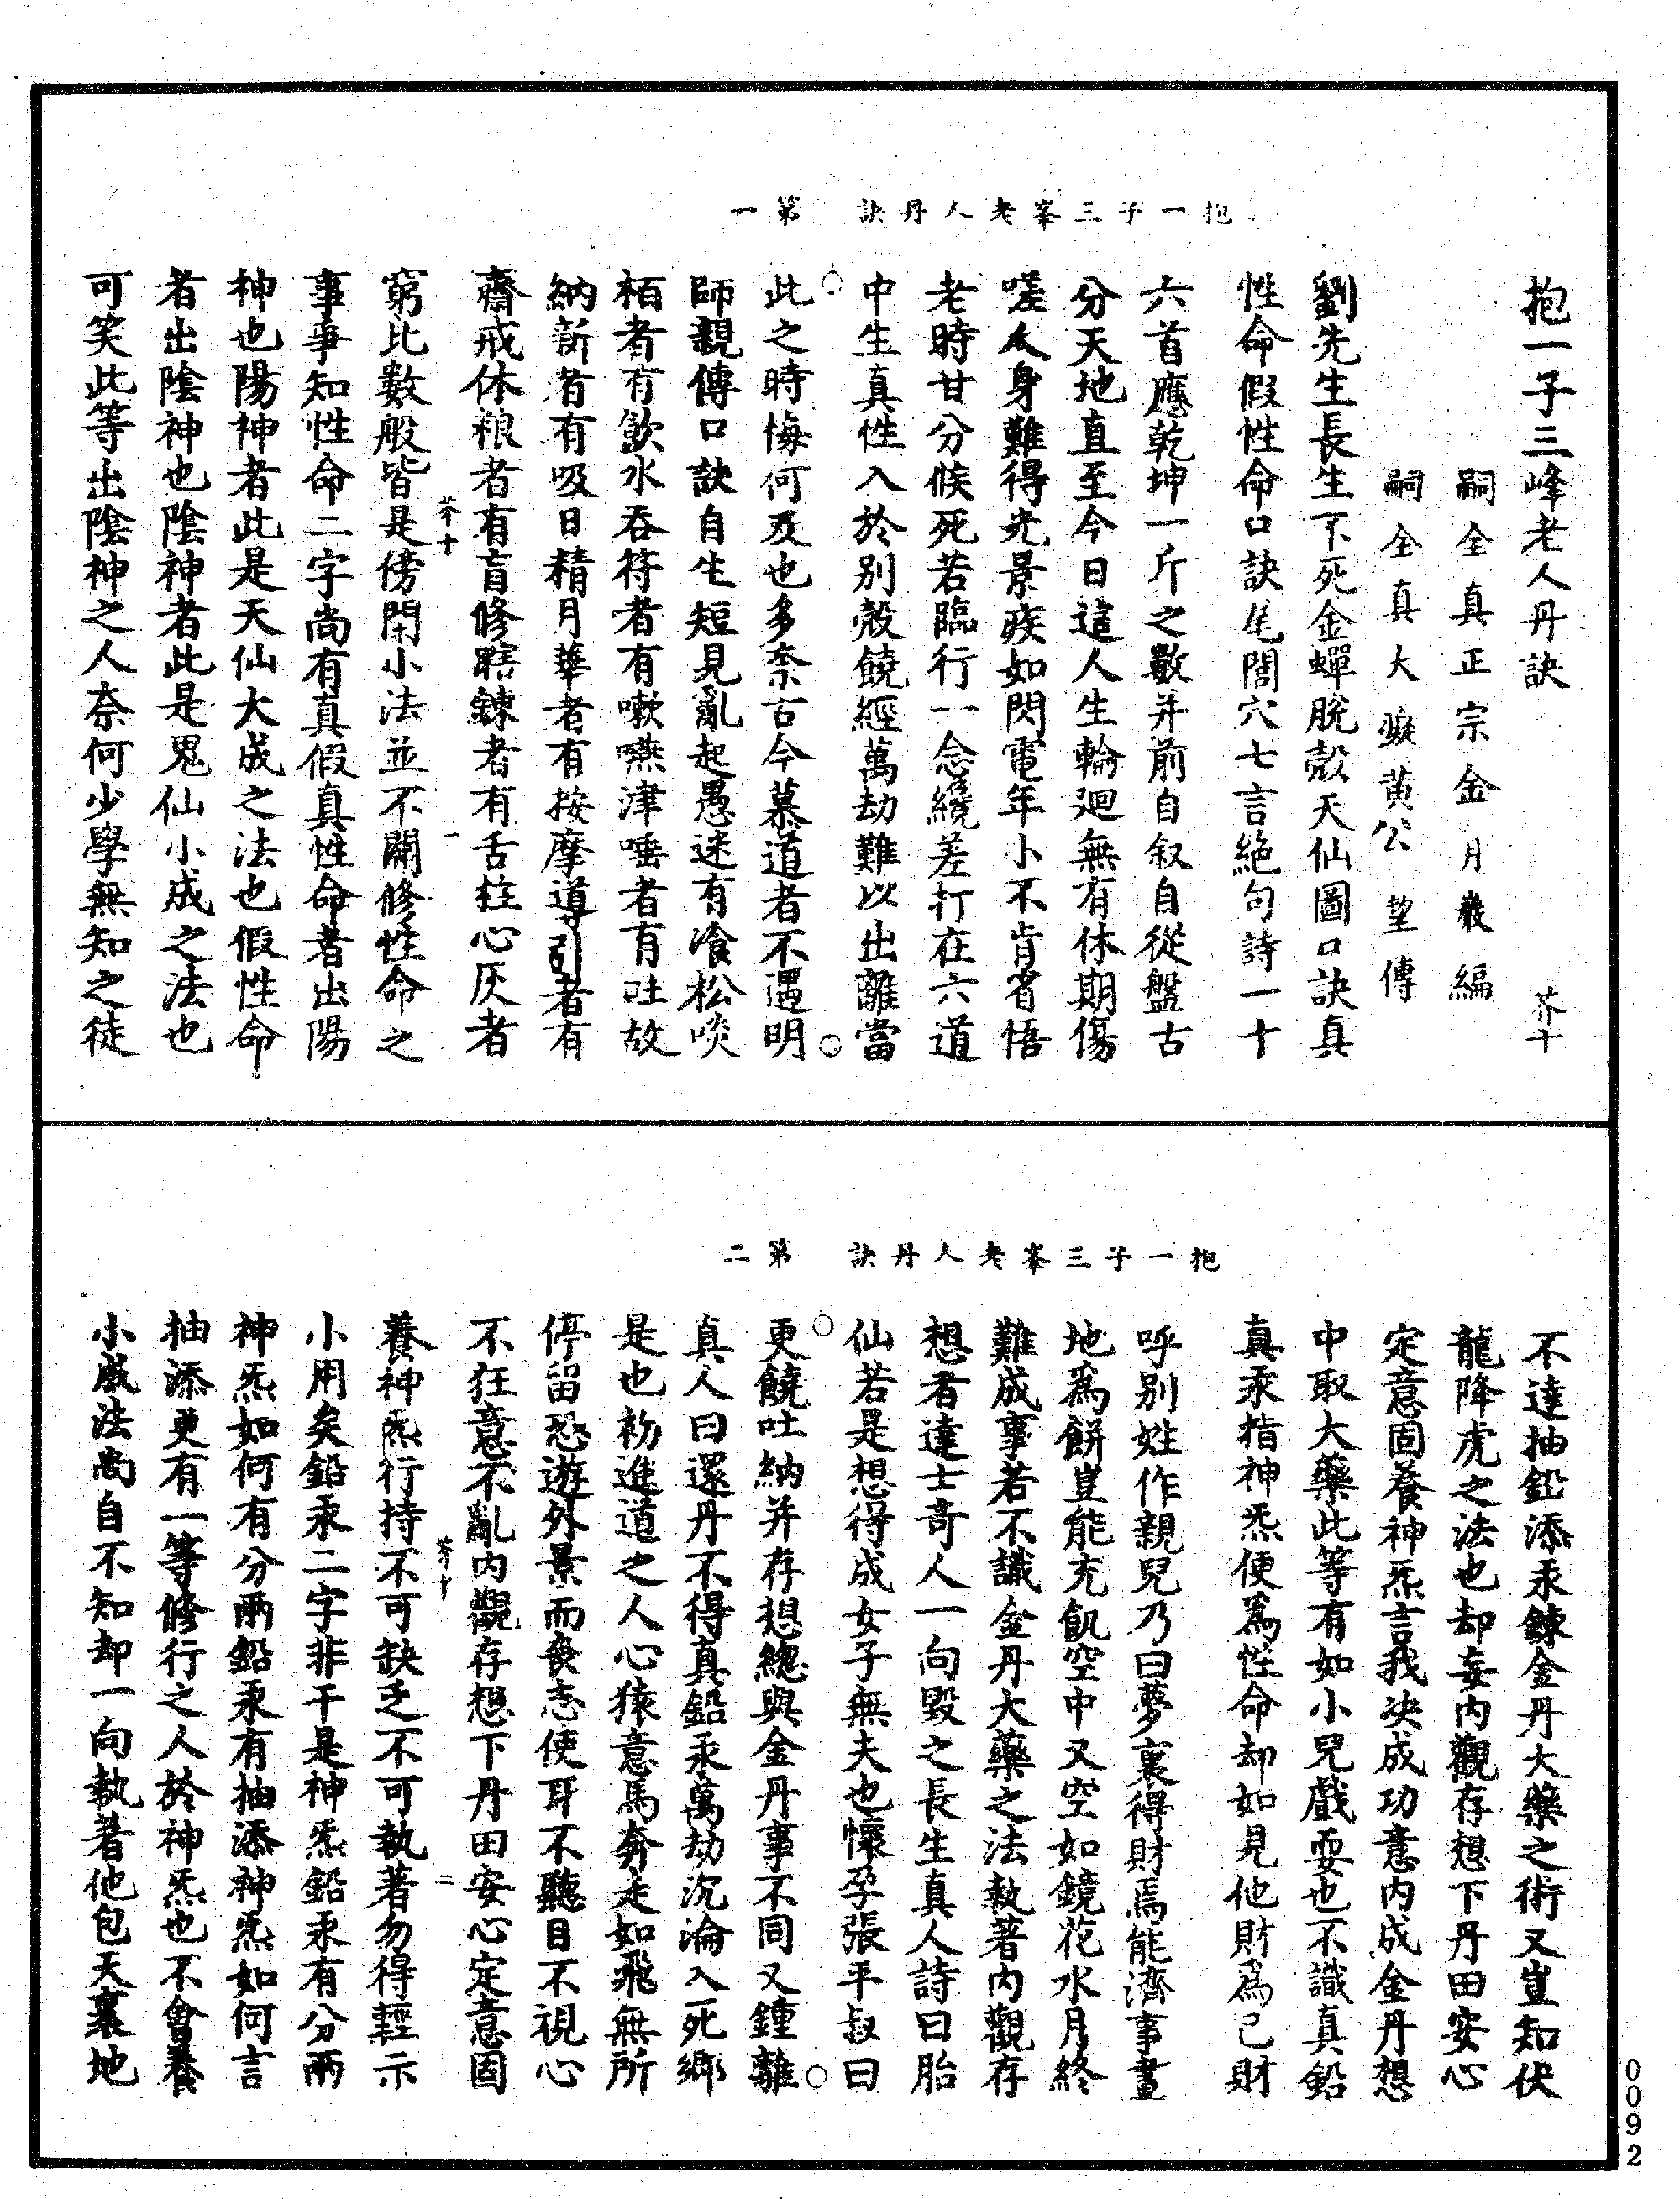 抱一子三峯老人丹訣　第一
抱一子三峰老人丹訣　芥十
嗣全真正宗金月巖編
嗣全真大癡黄公望傳
劉先生長生不死金蟬脫殼天仙圖口訣真
性命假性命口訣尾閭穴七言絕句詩一十
六首應乾坤一斤之數并前自叙自從盤古
分天地直至今日這人生輪廻無有休期傷
嗟人身難得光景疾如閃電年小不肯省悟
老時甘分候死若臨行一念纔差打在六道
中生真性入於別殼饒經萬劫難以出離當
此之時悔何及也多柰古今慕道者不遇明
師親傳口訣自生短見亂起愚迷有飡松啖
栢者有飲水吞符者有嗽嚥津唾者有吐故
納新者有吸日精月華者有按摩導引者有
齋戒休粮者有盲修瞎鍊者有舌拄心灰者
芥十　一
窮比數般皆是傍門小法並不關修性命之
事事知性命二字尚有真假真性命者出陽
神也陽神者此是天仙大成之法也假性命
者出陰神也陰神者此是鬼仙小成之法也
可笑此等出陰神之人奈何少學無知之徒
抱一子三峯老人丹訣　第二
不達抽鉛添汞鍊金丹大藥之術又豈知伏
龍降虎之法也却妄內觀存想下丹田安心
定意固養神炁言我决成功意內成金丹想
中取大藥此等有如小兒戲耍也不識真鉛
真汞指神炁便爲性命却如見他財爲己財
呼別姓作親兒乃曰夢裏得財焉能濟事畫
地爲餅豈能充飢空中又空如鏡花水月終
難成事若不識金丹大藥之法執著內觀存
想者達士奇人一向毀之長生真人詩曰胎
仙若是想得成女子無夫也懷孕張平叔曰
更饒吐納并存想總與金丹事不同又鍾離
真人曰還丹不得真鉛汞萬劫沉淪入死鄉
是也初進道之人心猿意馬奔走如飛無所
停留恐遊外景而喪志使耳不聽目不視心
不狂意不亂內觀存想下丹田安心定意固
芥十　二
養神炁行持不可缺乏不可執著勿得輕示
小用矣鉛汞二字非干是神炁鉛汞有分兩
神炁如何有分兩鉛汞有抽添神炁如何言
抽添更有一等修行之人於神炁也不會養
小成法尚自不知却一向執著他包天裹地
0092